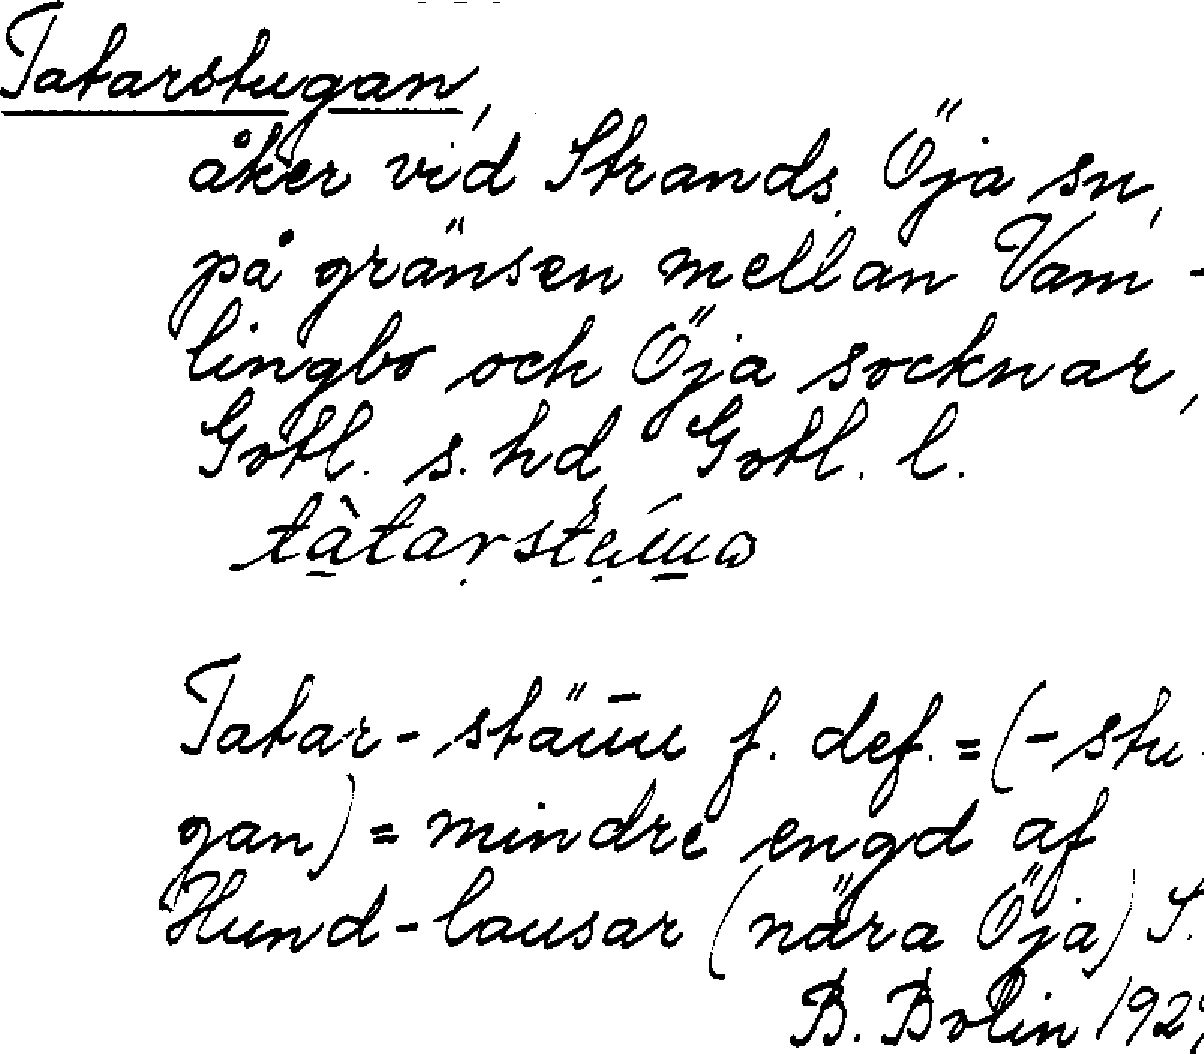 Tatarstugan,
åker vid Strands, Öja sn,
på gränsen mellan Vam-
lingbo och Öja socknar,
Gotl. s. hd, Gotl. l.
Tatar-stäūu f. def. = (-stu-
gan) = mindre engd af
Hund-lausar (nära Öja) S.
B. Bolin 192